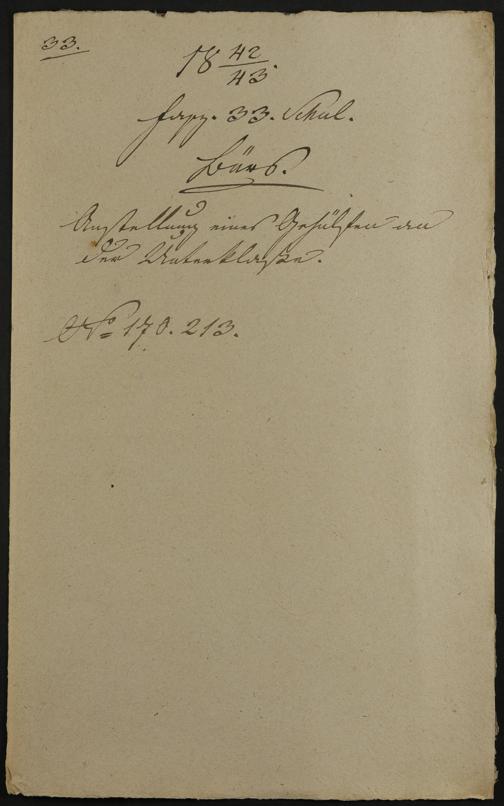 33.
18 42/43.
Fasz. 33. Schul.
Bürs.
Anstellung eines Gehülfen an
der Unterklasse.
No 170. 213.